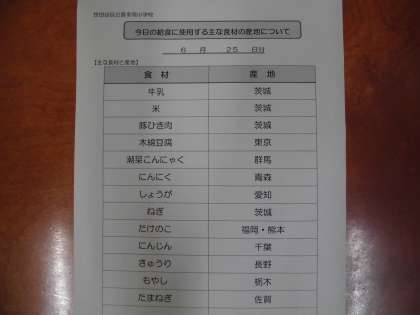 今日の給食に使用する主な食材の産地について
6 月 25 日分
【主な食材と産地】
食 材 産 地
牛乳 茨城
米 茨城
豚ひき肉 茨城
木綿豆腐 東京
こんにゃく 群馬
にんにく 青森
しょうが 愛知
ねぎ 茨城
たけのこ 福岡・熊本
にんじん 千葉
きゅうり 長野
もやし 栃木
たまねぎ 佐賀